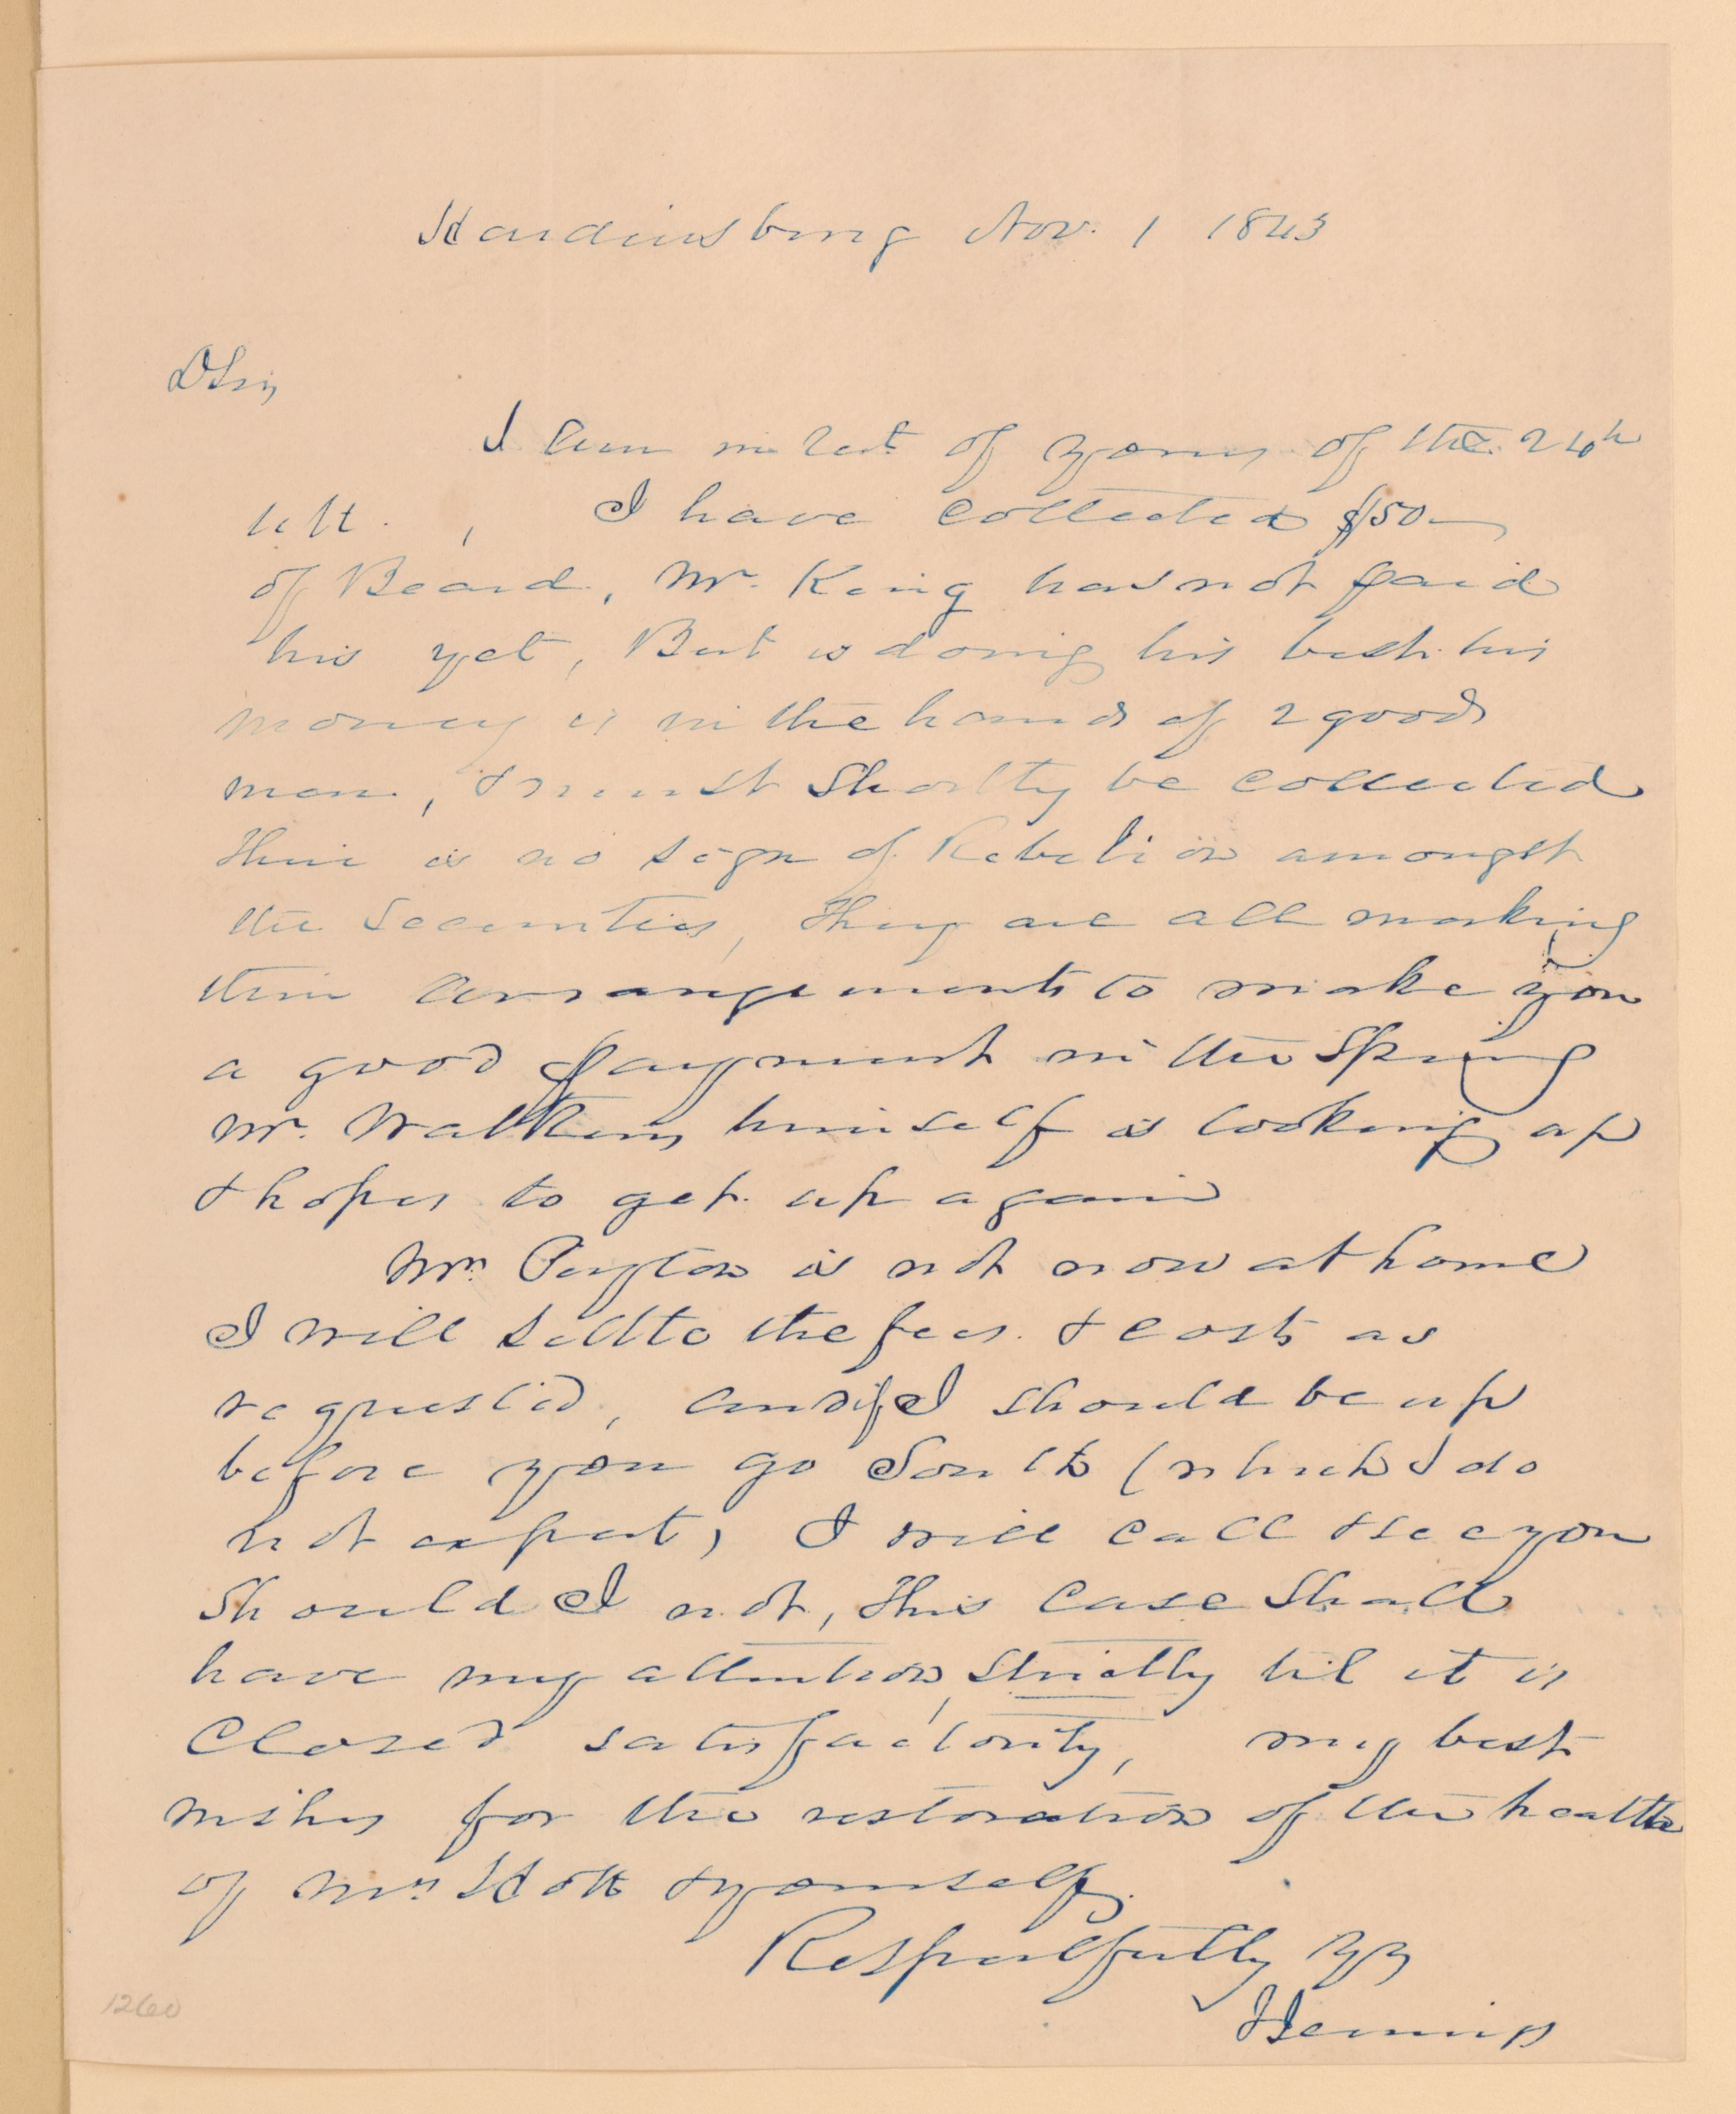 Hardinsburg Nov. 1 1843
D Sir,
I am in rect. of yours of the 24th
ult. , I have collected $150
of Beard, Mr. King has not paid
his yet, But is doing his best. his
money is in the hands of 2 good
men, & must Shortly be collected
There is no sign of Rebelion amongst
the Securities, They are all making
their arrangements to make you
a good payment in the Spring
Mr. Watkins himself is looking up
& hopes to get up again
Mr Peyton is not now at home
I will settle the fees. & costs as
requested, and if I should be up
before you go South (which I do
not expect) I will call & see you
Should I not, this case Shall
have my attention, strictly til it is
Closed satisfactorily, my best
wishes for the restoration of the health
of Mrs Holt & yourself.
Respectfully Yrs
1260